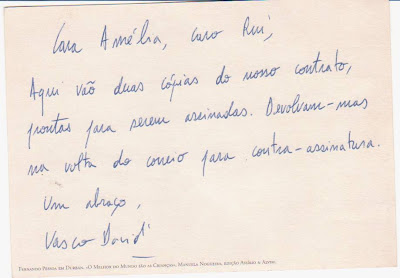 Cara Amélia, caro Rui,
Aqui vão duas cópias do nosso contrato,
prontas para serem assinadas. Devolvam-mas
na volta do correio para contra-assinatura.
Um abraço,
Vasco David
Fernando Pessoa em Durban. «O Melhor do Mundo são as Crianças», Manuela Nogueira, edição Assírio & Alvim.